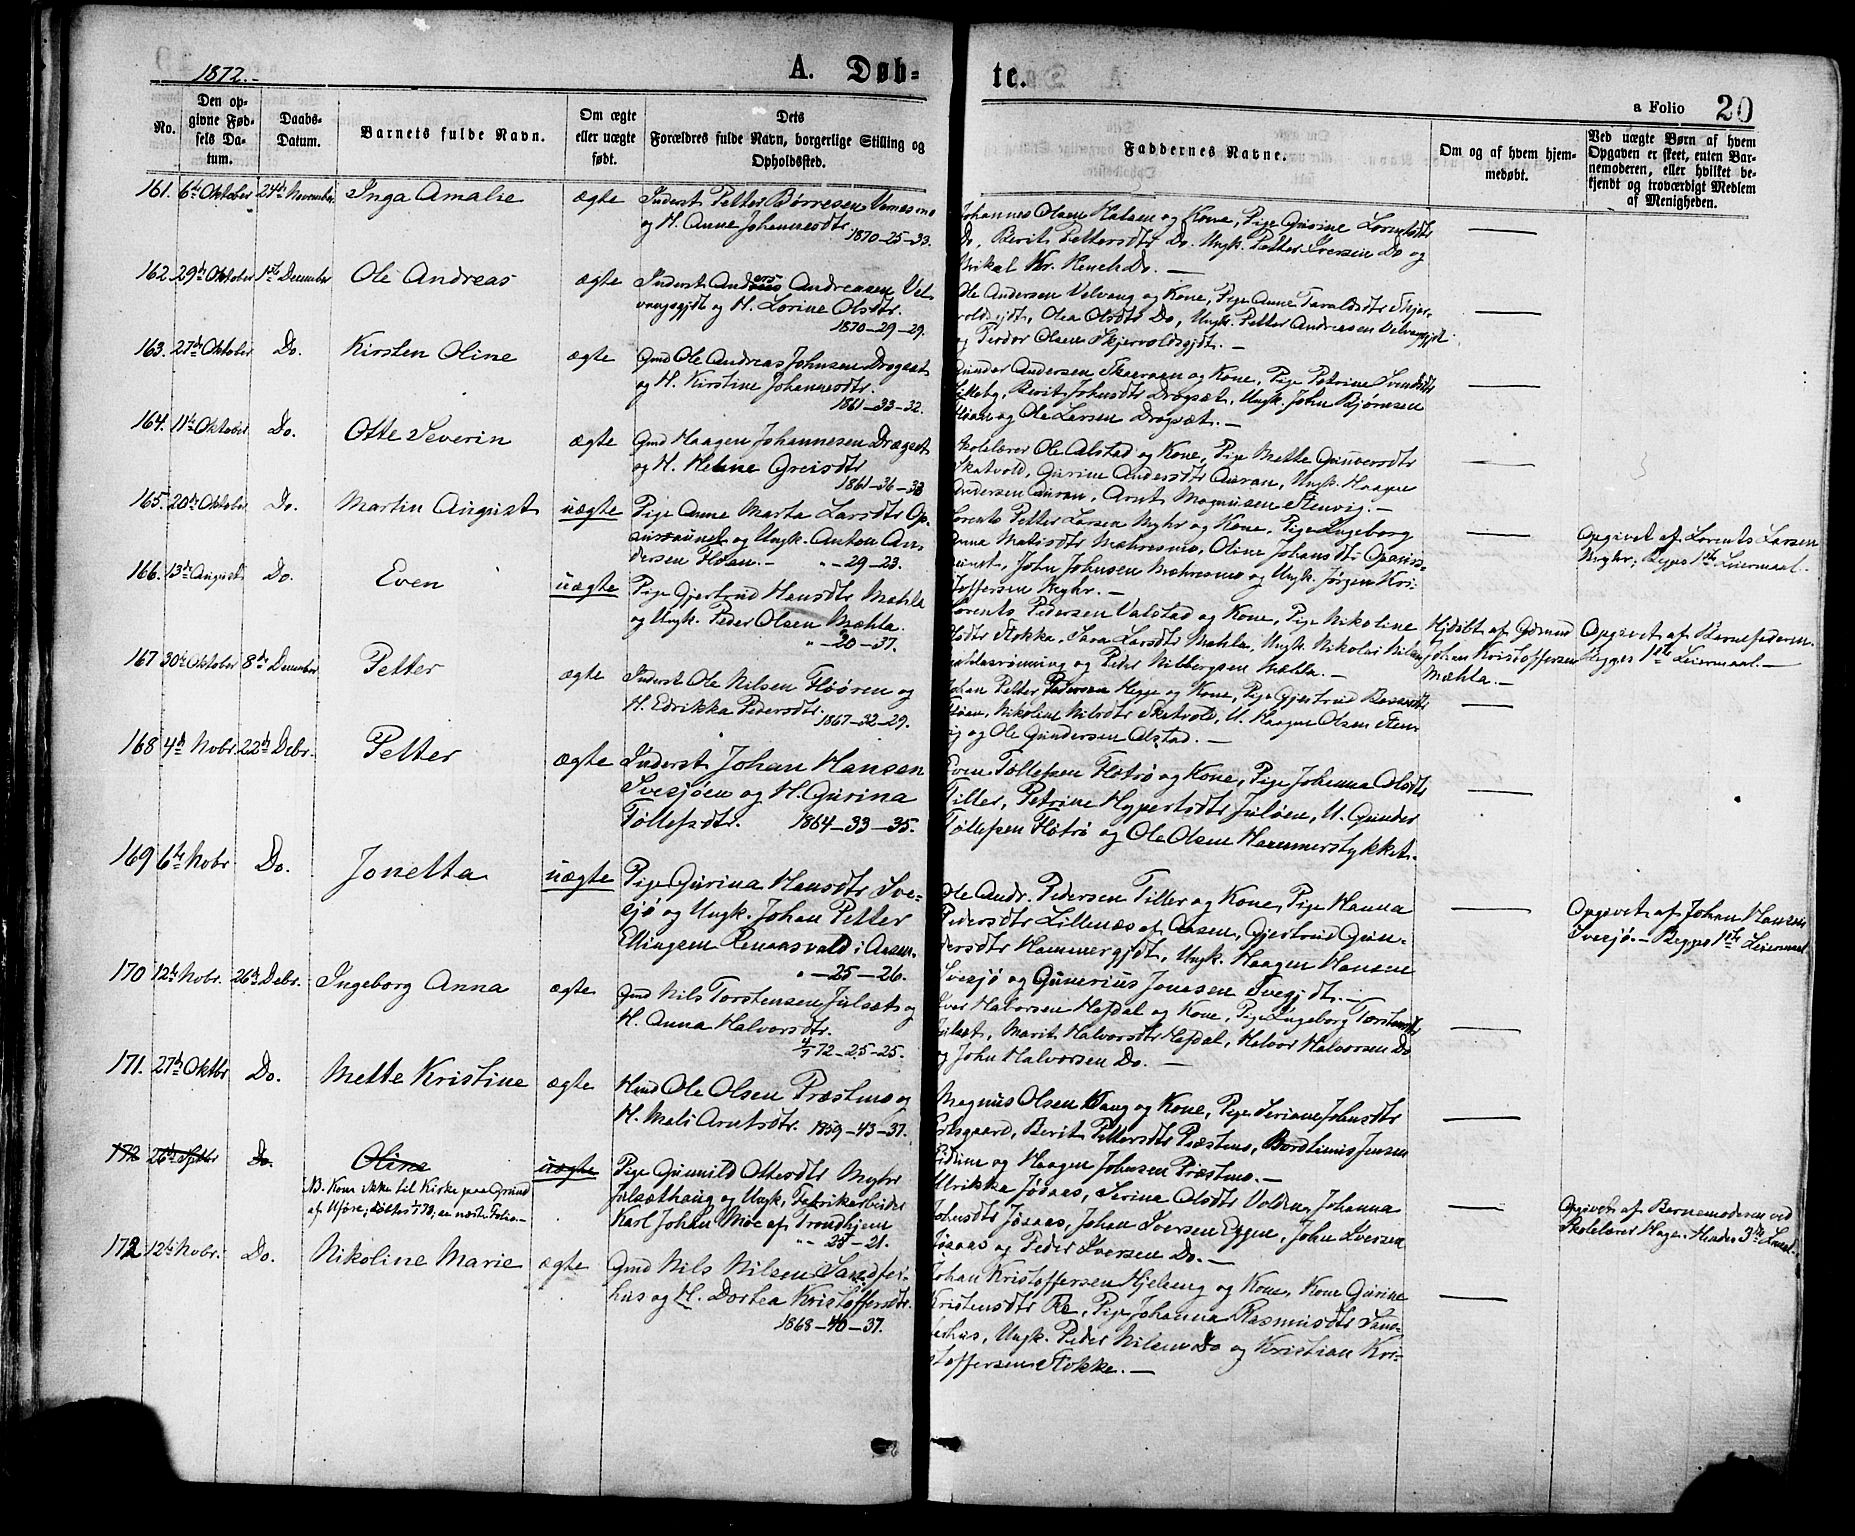 1872.-
A. Døb- te.
a Folio 20
No.
Den opgivne Fødsels Datum.
Daabs-Datum.
Barnets fulde Navn.
Om ægte eller uægte født.
Dets Forældres fulde Navn, borgerlige Stilling og Opholdssted.
Faddernes Navne.
Om og af hvem hjemmedøbt.
Ved uægte Børn af hvem Opgaven er skeet, enten Barnemoderen, eller hvilket bekjendt og troværdigt Medlem af Menigheden.
161. 6te Oktober 24de November Inga Amalie ægte Inderst Petter Børresen
og H. Anne Johannesdtr. 1870-25-33.
Johannes Olsen Halsen og Kone, Pige Gurine Lorentsdtr
Do, Berit Pettersdtr Do. Ungk. Petter Iversen Do og
162. 29de Oktober 1ste December Ole Andreas ægte Inderst Anders Andreasen Vel-
vangsgjdt og H. Lorine Olsdtr. 1870-29-29.
Ole Andersen Velvang og Kone, Pige Anne Taraldsdtr Skjer-
voldsgjdt, Olea Olsdtr Do, Ungk. Petter Andreasen Velvangsgjdt
og Peder Olsen Skjervoldsgjdt. -
163. 27de Oktober Do. Kirsten Oline ægte Gmd Ole Andreas Johnsen Drogset
og H. Kirstine Johannesdtr. 1861-33-32.
Gunder Andersen og Kone, Pige Petrine Svendsdtr
Berit Johnsdtr Drogsæt, Ungk. John Bjørnsen
og Ole Larsen Drogsæt. -
164. 11te Oktober Do. Otte Severin ægte Gmd Haagen Johannesen Drægset
og H. Heline Greisdtr 1861-36-33
Skolelærer Ole Alstad og Kone, Pige Mette Gunversdtr
Skatvold, Gurine Andersdtr Auran, Ungk. Haagen
Andersen Auran, Arnt Magnusen Stenvig. -
165. 20de Oktober Do. Martin August uægte Pige Anne Marta Larsdtr Op-
og Ungk. Anton An-
dersen Floan. - " -29-23.
Lorents Petter Larsen Myhr og Kone, Pige Ingeborg
Anna Matisdtr Mæhresmo, Oline Johansdtr
John Johnsen Mæhresmo og Ungk. Jørgen Kri-
stoffersen Myhr. -
Opgivet af Lorents Larsen
Myhr; Begges 1ste Leiermaal. -
166. 13de August Do. Even uægte Pige Gjertrud Hansdtr Mæhla
og Ungk. Peder Olsen Mæhla.
" -20-37.
Lorents Pedersen Valstad og Kone, Pige Nikoline
Olsdtr Stokka, Sara Larsdtr Mæhla, Ungk. Nikolai Nilsen
og Peder Mæhla. -
Hjdøbt af Gdmand
Johan Kristoffersen
Mæhla. -
Opgivet af Barnefaderen.
Begges 1ste Leiermaal. -
167 30te Oktober 8de December Petter ægte Inderst Ole Nilsen Floøren og
H. Edrikka Pedersdtr. 1867-32-29.
Johan Petter Pedersen Hegge og Kone, Pige Gjertrud
Floen, Nikoline Nilsdtr Skatvold, U. Haagen Olsen Sten-
vig og Ole Gundersen Alstad. -
168 4de Nobr. 22de Debr. Petter ægte Inderst Johan Hansen
Svesjøen og H. Gurina
Tollefsdtr. 1864-33-35.
Even Tollefsen Flotrø og Kone, Pige Johanna Olsdtr
Tiller, Petrine Juløen, U. Gunder
Tollefsen Flotrø og Ole Olsen Hammerstykket.
169 6te Nobr Do. Jonetta uægte Pige Gurina Hansdtr Sve-
sjø og Ungk. Johan Petter
Ellingsen
" -25-26.
Ole Andr. Pedersen Tiller og Kone, Pige Hanna
Pedersdtr Lillenæs af Aasen, Gjertrud Gun-
dersdtr Hammergjdt, Ungk. Haagen Hansen
Svesjø og Gunerius Jonasen Svegjdt. -
Opgivet af Johan Hansen
Svesjø. - Begges 1ste Leiermaal
170 12te Nobr. 26de Debr. Ingeborg Anna ægte Gmd Nils Torstensen Julset og
H. Anna Halvorsdtr.
4/7 72-25-25.
Iver Halvorsen Hofdal og Kone, Pige Ingeborg Torstensdtr
Julset, Marit Halvorsdtr Hofdal, Halvor Halvorsen Do
og John Halvorsen Do. -
171. 27de Oktbr Do. Mette Kristine ægte Hmd Ole Olsen Præstmo og
H. Mali Arntsdtr. 1859-43-37.
Magnus Olsen Vang og Kone, Pige Seriane Johnsdtr
Berit Pettersdtr Præstmo, Bordtinus Jensen
og Haagen Johnsen Præstmo. -
172 26de Septbr Do. Oline uægte Pige Gunild Ottersdtr Myhr
NB. Kom ikke til Kirke paa Grund
af Uføre;
Julsæthaug og Ungk. Fabrikarbeider
Karl Johan Moe af Trondhjem
" - 27-21.
Ulrikka Jøsaas, Serina Olsdtr Volden, Johanna
Johnsdtr Jøsaas, Johan Iversen Eggen, John Iversen
Jøsaas og Peder Iversen Do. -
Opgivet af Barnemoderen ved
Skolelærer Hage.
172 12te Nobr. Do. Nikoline Marie ægte Gmd Nils Nilsen Sandfer-
hus og H. Dortea Kristoffersdtr.
1868-40-37.
Johan Kristoffersen Hjelseng og Kone, Kone Gurine
Kristensdtr Re, Pige Johanna Rasmusdtr Sand-
ferhus, Ungk. Peder Nilsen Do og Kristian Kri-
stoffersen Stokke. -